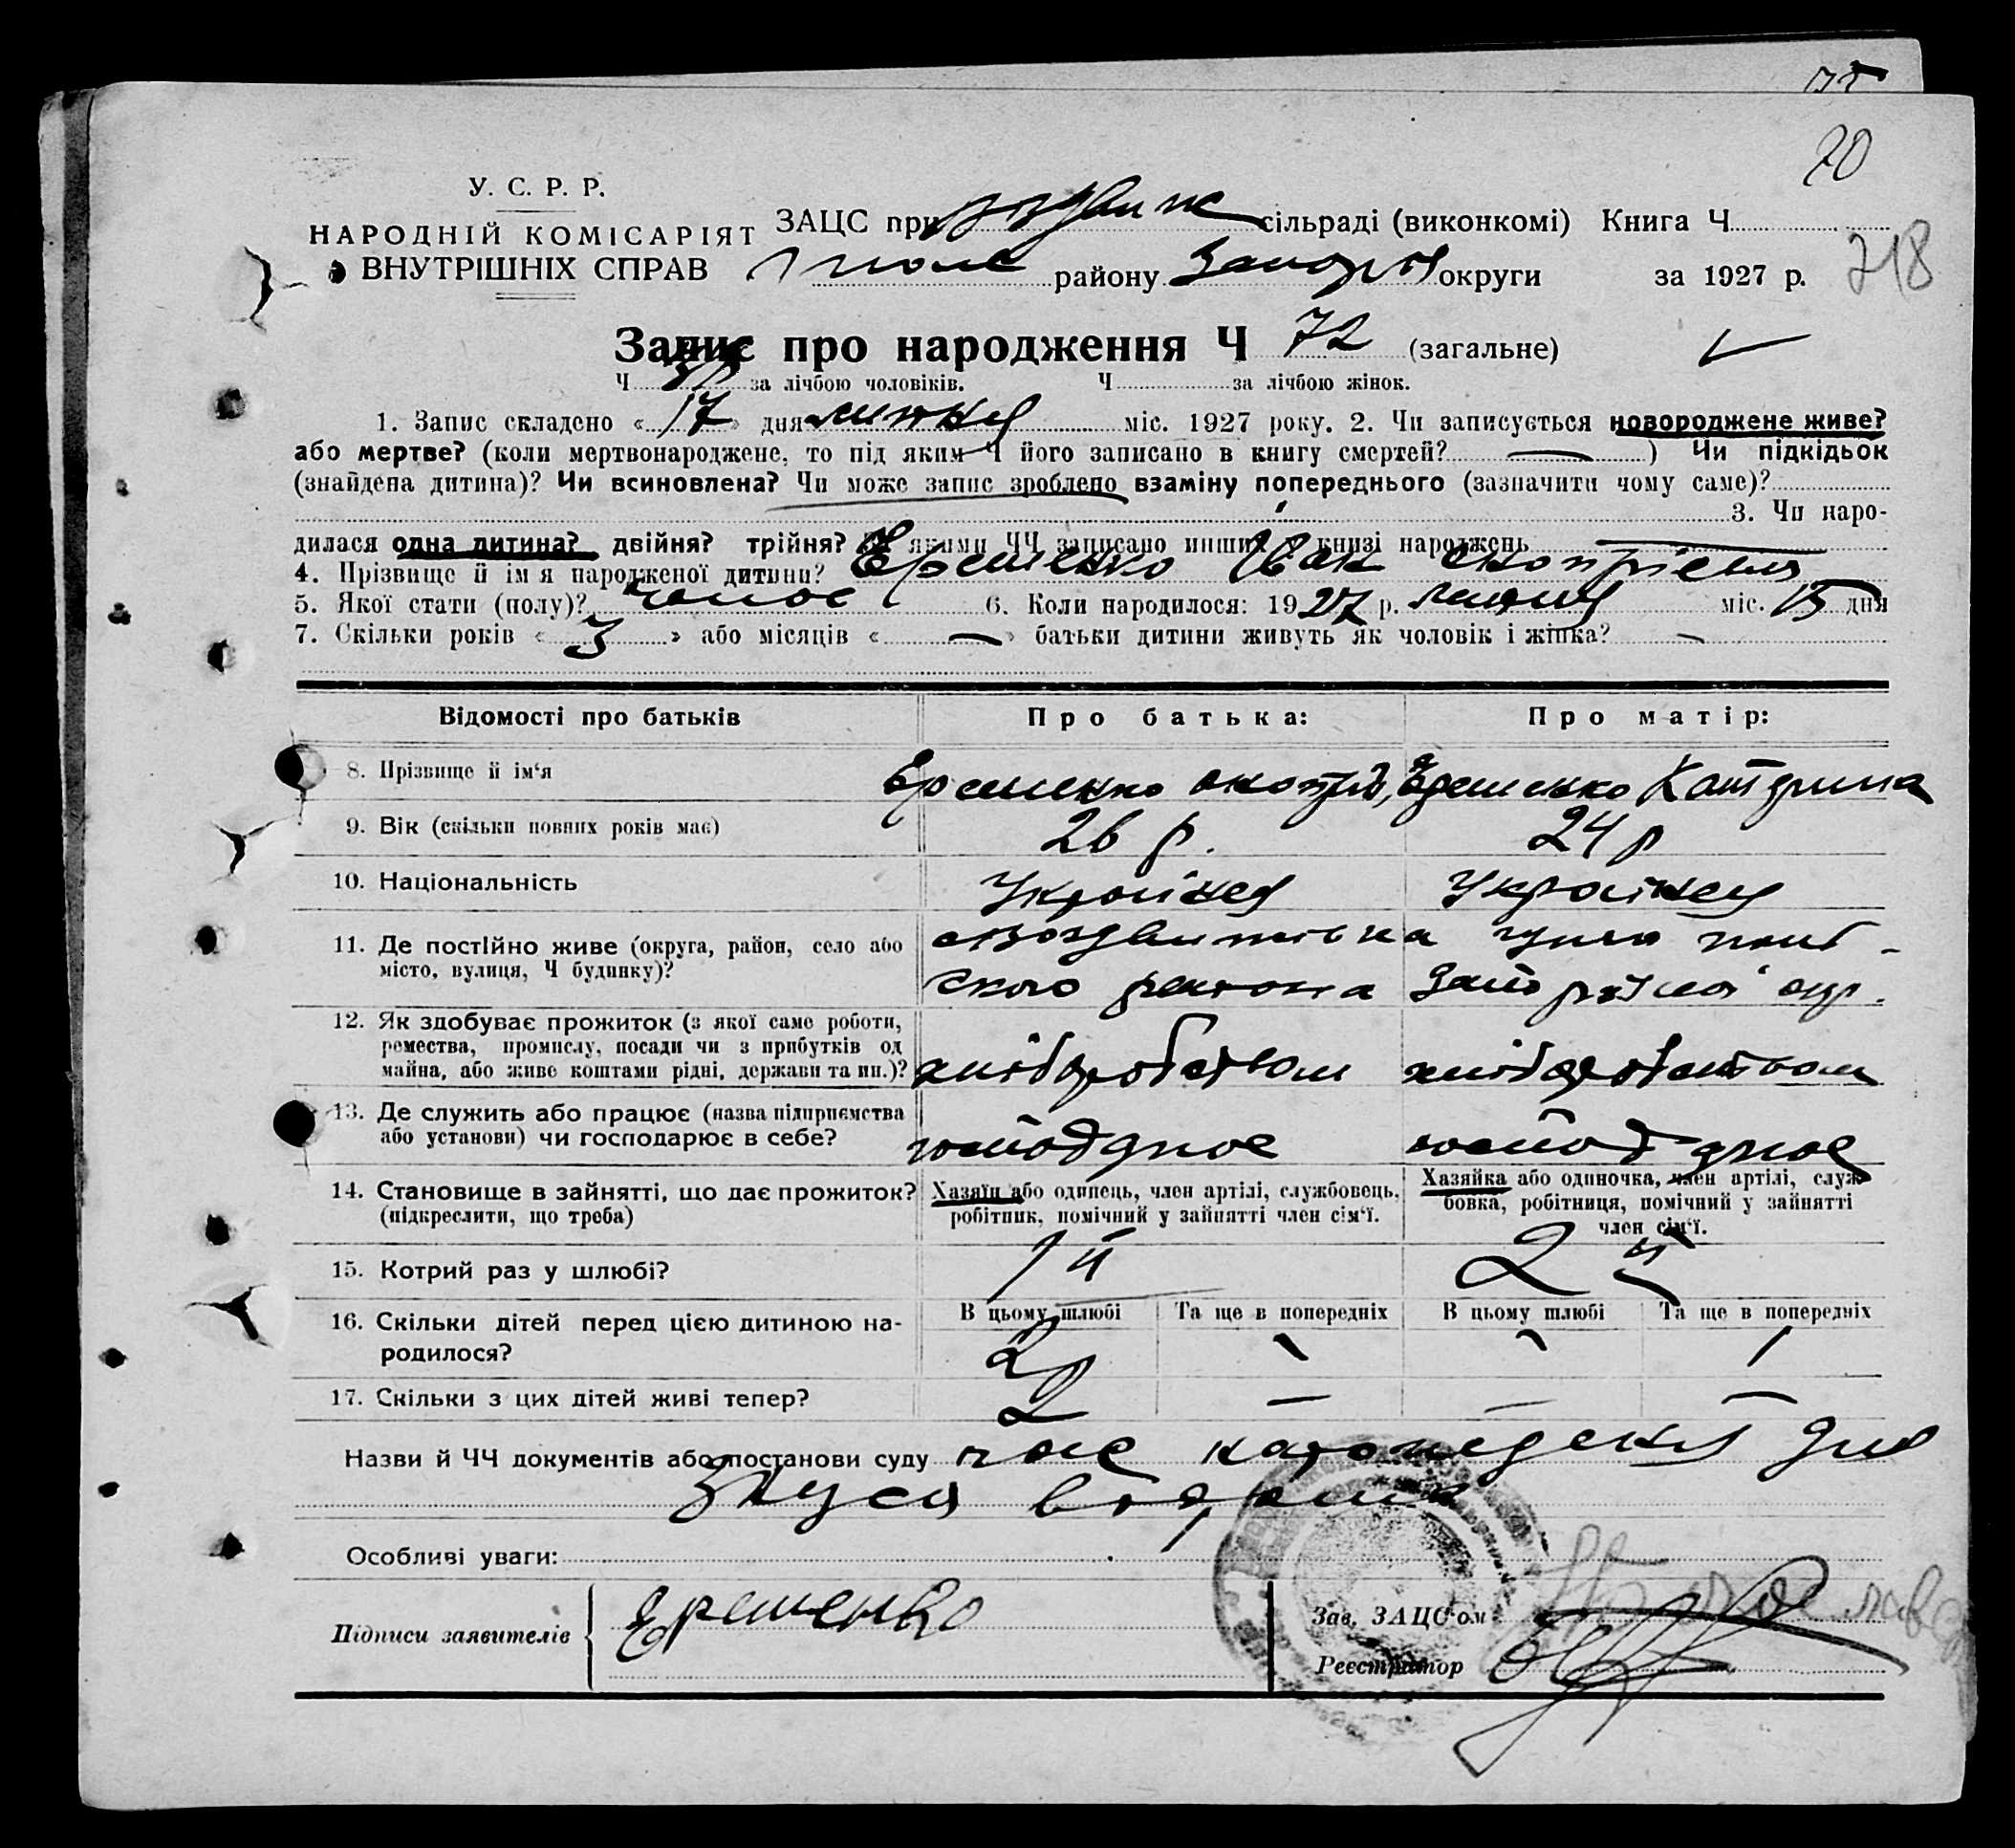 20
У. С. Р. Р.
НАРОДНІЙ КОМІСАРІЯТ
ВНУТРІШНІХ СПРАВ
ЗАЦС при сільраді (виконкомі) Книга Ч.
району Запор округи за 1927 р.
218
Запис про народження Ч 72 (загальне)
Ч за лічбою чоловіків. Ч за лічбою жінок.
1. Запис складено « 17 » дня липня міс. 1927 року. 2. Чи записується новороджене живе?
або мертве? (коли мертвонароджене, то під яким Ч його записано в книгу смертей? — ) Чи підкідьок
(знайдена дитина)? Чи всиновлена? Чи може запис зроблено взаміну попереднього (зазначити чому саме)?
3. Чи наро-
дилася одна дитина? двійня? трійня? якими ЧЧ записано инших книзі народжень
4. Прізвище й ім'я народженої дитини? Єременко Іван
5. Якої стати (полу)? чолов 6. Коли народилося: 1927 р. липня міс. 15 дня
7. Скільки років « 3 » або місяців « — » батьки дитини живуть як чоловік і жінка? —
Відомості про батьків
Про батька:
Про матір:
8. Прізвище й ім'я
Єременко
Єременко Катерина
9. Вік (скільки повних років має)
26 р.
24 р
10. Національність
Українец
Украінка
11. Де постійно живе (округа, район, село або
місто, вулиця, Ч будинку)?
с Воздвижівка Гуляй поль-
ского района Запоріжскоі окр.
12. Як здобуває прожиток (з якої саме роботи,
ремества, промислу, посади чи з прибутків од
майна, або живе коштами рідні, держави та ин.)?
хліборобством
хліборобством
13. Де служить або працює (назва підприємства
або установи) чи господарює в себе?
14. Становище в зайнятті, що дає прожиток?
(підкреслити, що треба)
Хазяїн або одинець, член артілі, службовець,
робітник, помічний у зайнятті член сім'ї.
Хазяйка або одиночка, член артілі, служ-
бовка, робітниця, помічний у зайнятті
член сім'ї.
15. Котрий раз у шлюбі?
1й
2й
16. Скільки дітей перед цією дитиною на-
родилося?
В цьому шлюбі
Та ще в попередніх
В цьому шлюбі
Та ще в попередніх
2
17. Скільки з цих дітей живі тепер?
2 — — —
Назви й ЧЧ документів або постанови суду
Особливі уваги:
Підписи заявителів
Єременко
Зав. ЗАЦС'ом
Реєстратор